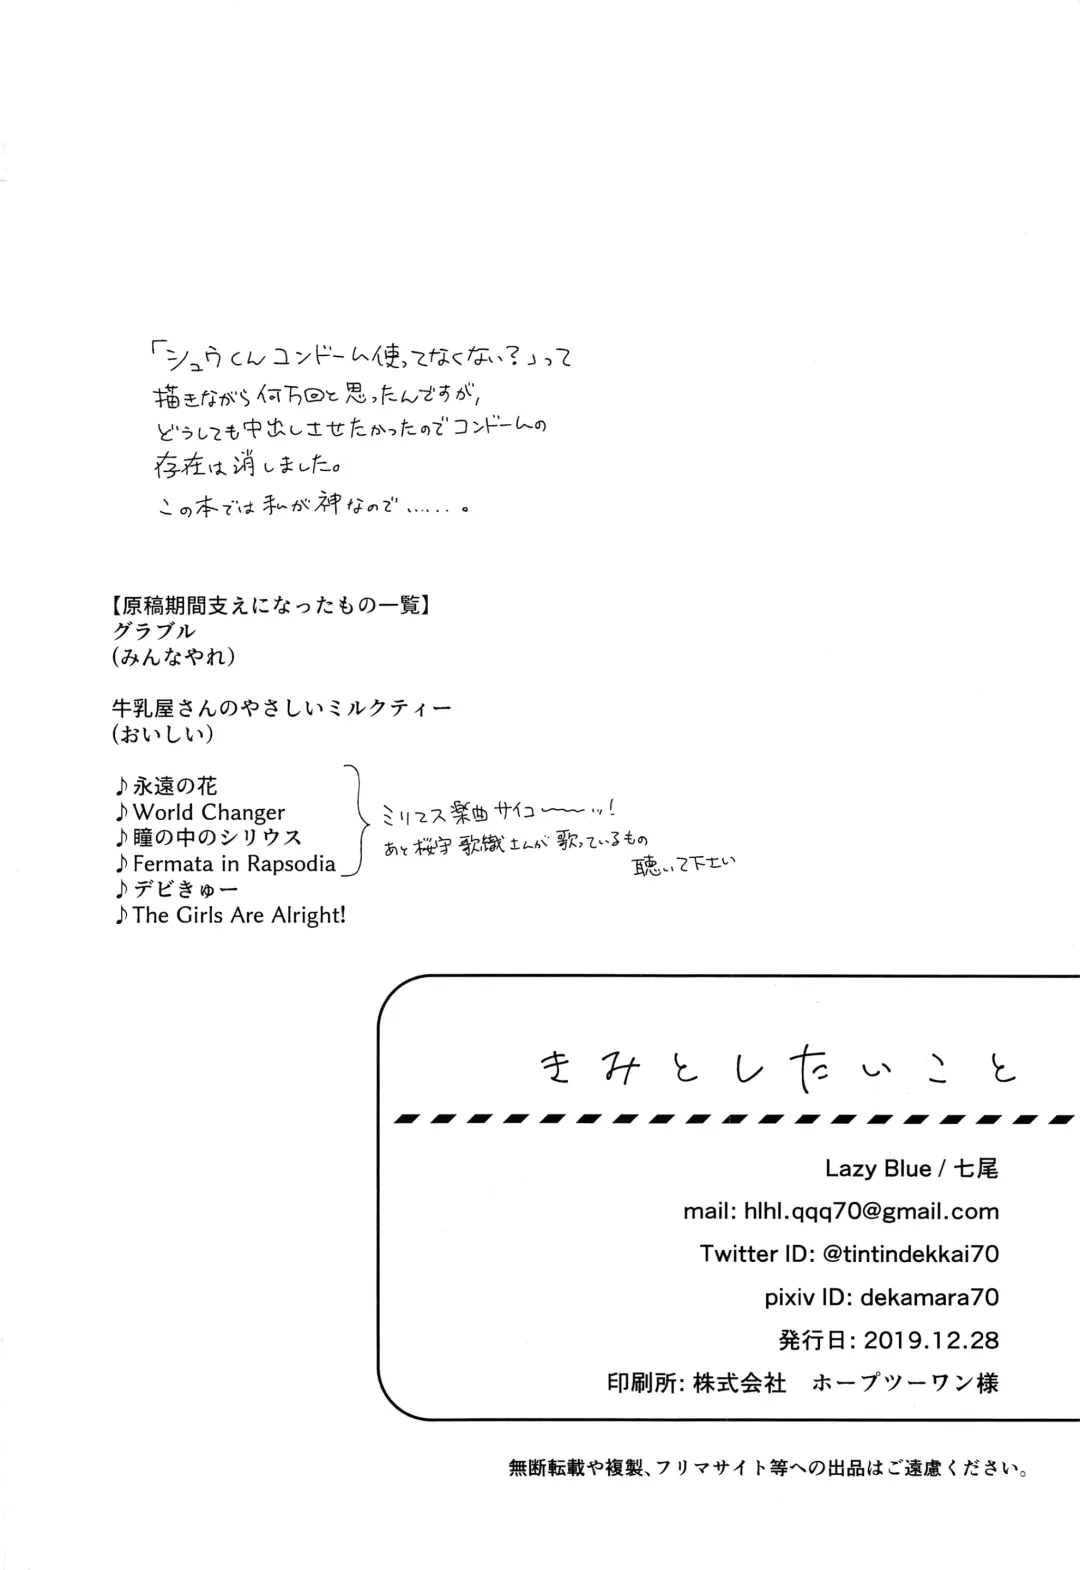 「シュウくんコンドーム使ってなくない？」って
描きながら何万回と思ったんですが、
どうしても中出しさせたかったのでコンドームの
存在は消しました。
この本では私が神なので……。
【原稿期間支えになったもの一覧】
グラブル
(みんなやれ)
牛乳屋さんのやさしいミルクティー
(おいしい)
♪永遠の花
♪World Changer
♪瞳の中のシリウス
♪Fermata in Rapsodia
♪デビきゅー
♪The Girls Are Alright!
ミリマス楽曲サイコ〜〜ッ!
あと桜守歌織さんが歌っているもの
聴いて下さい
きみとしたいこと
Lazy Blue / 七尾
mail: hlhl.qqq70@gmail.com
Twitter ID: @tintindekkai70
pixiv ID: dekamara70
発行日: 2019.12.28
印刷所: 株式会社　ホープツーワン様
無断転載や複製、フリマサイト等への出品はご遠慮ください。